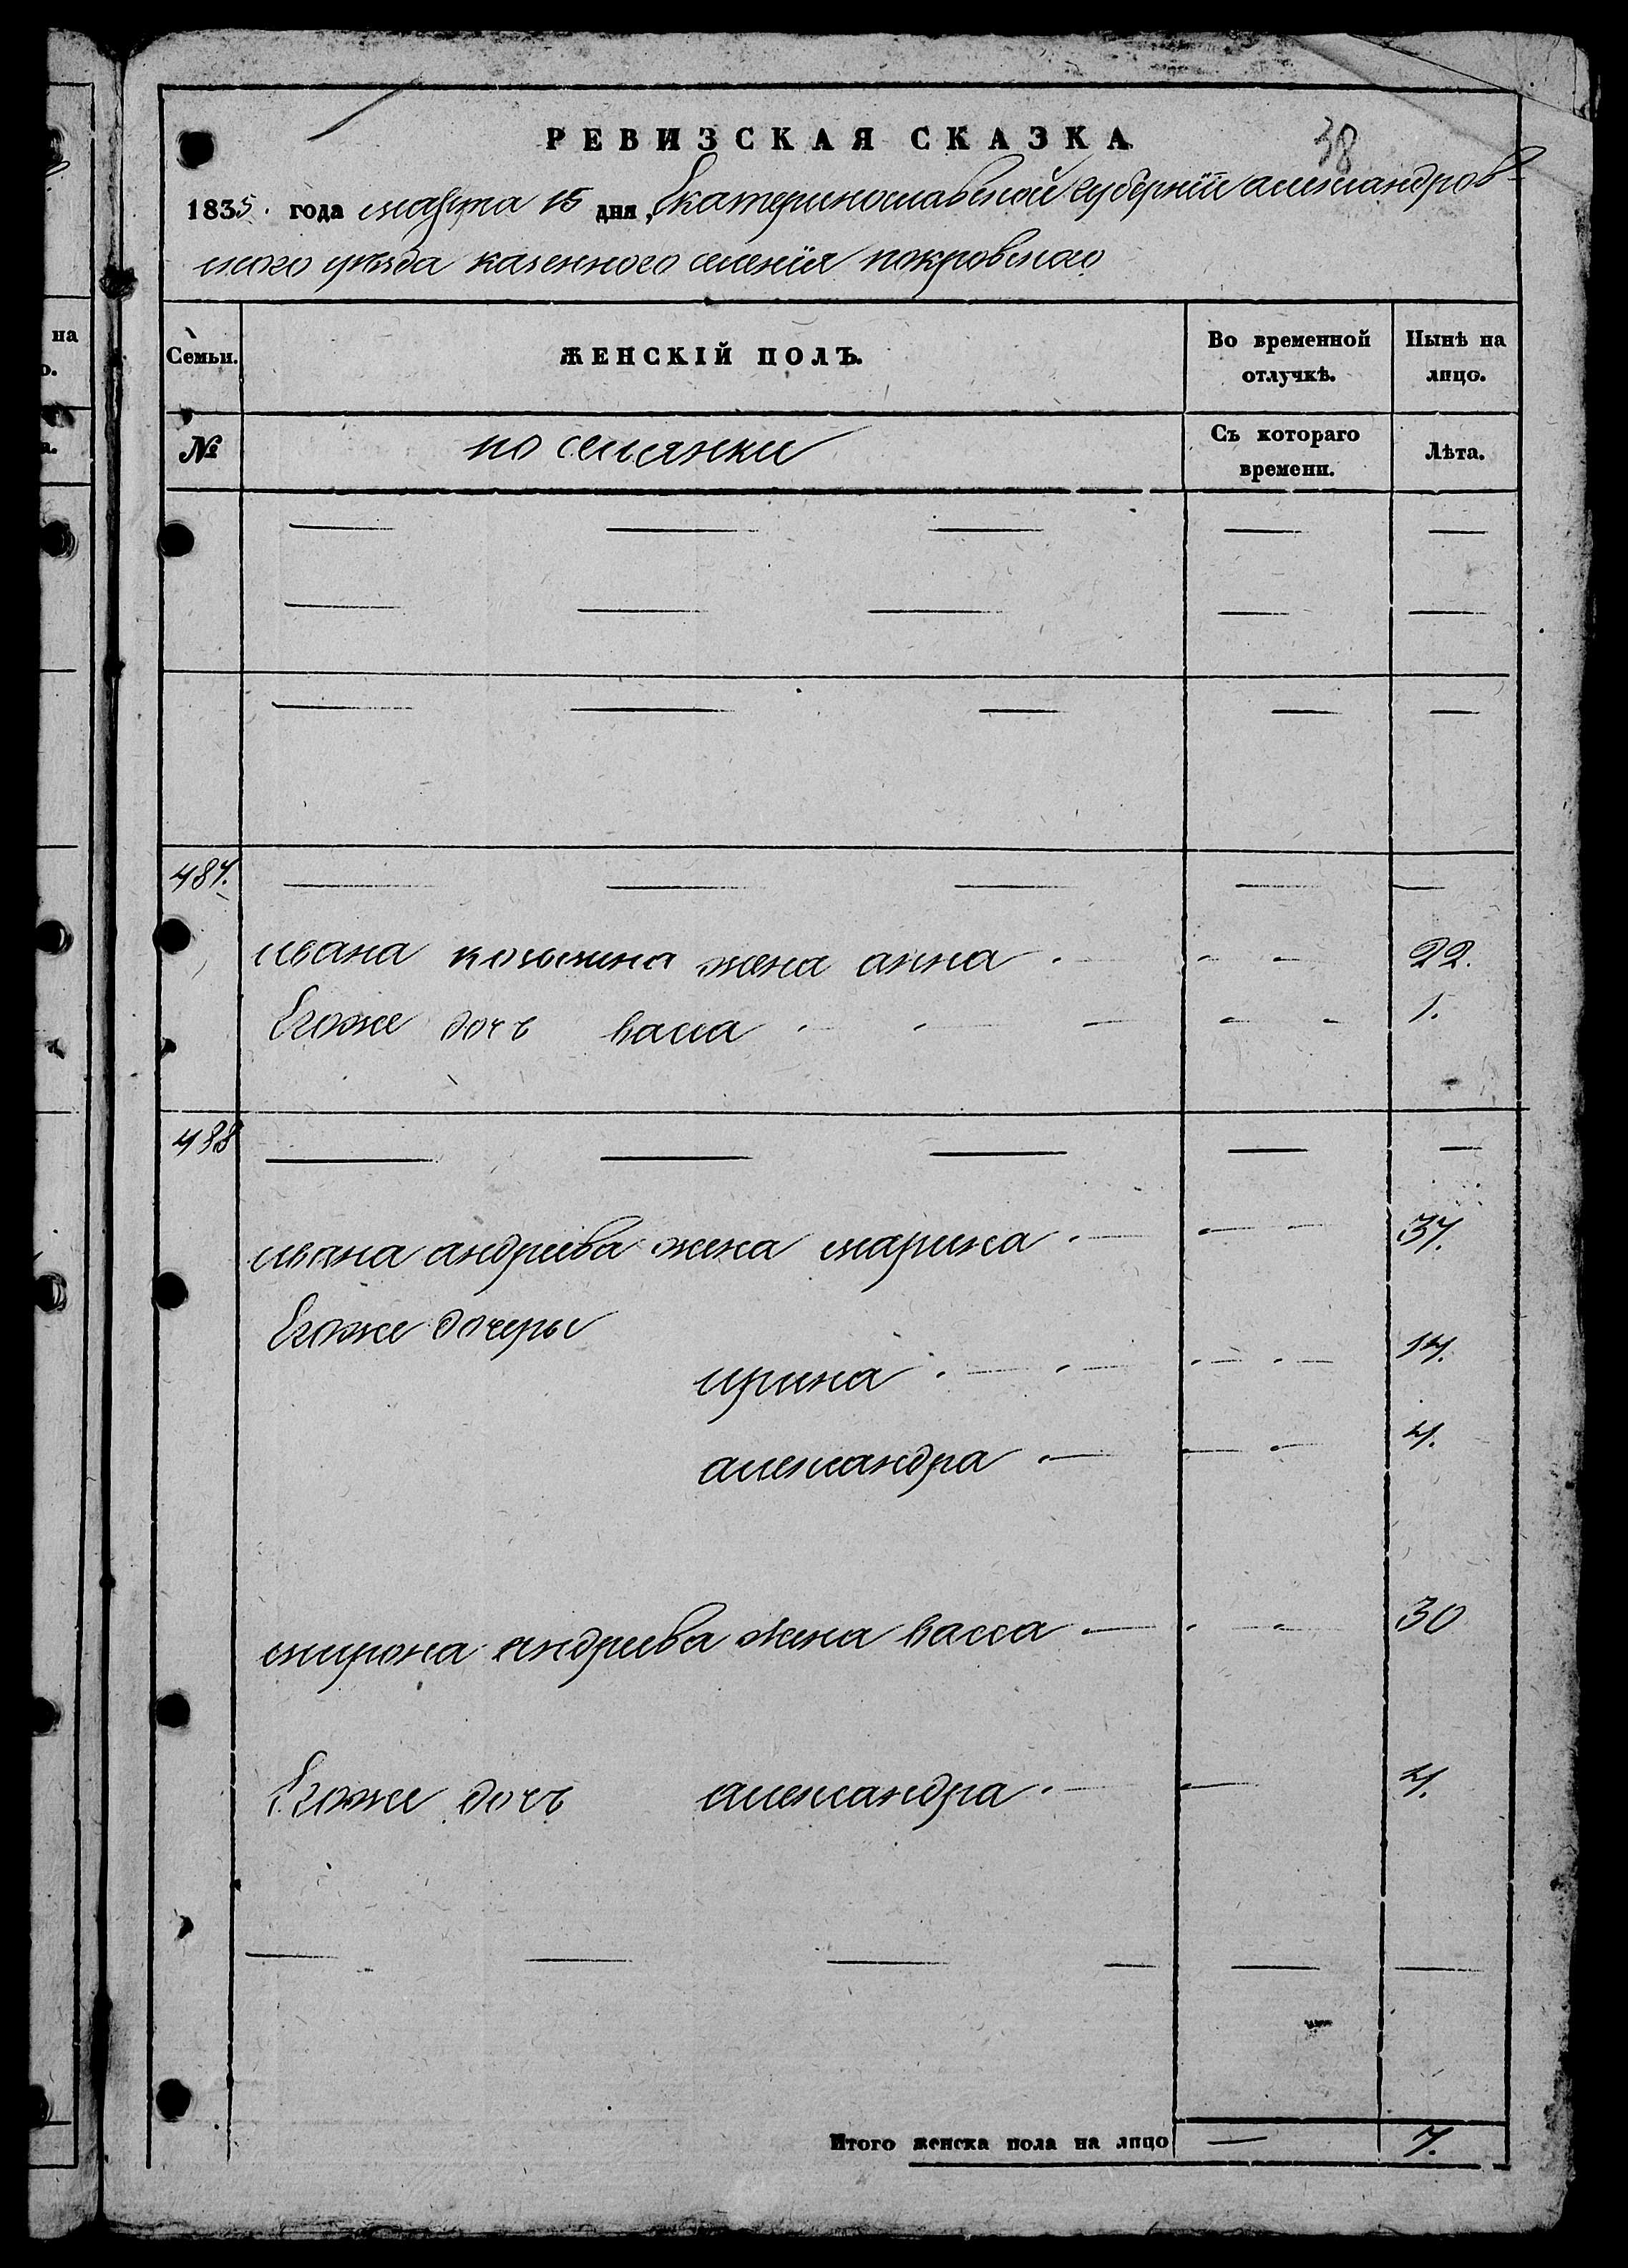 РЕВИЗСКАЯ СКАЗКА
38
1835. года марта 15 дня, Екатеринославской губернїи александров-
ского уезда казенного селенїя покровского
Семьи.
ЖЕНСКІЙ ПОЛЪ.
Во временной отлучкѣ.
Нынѣ на лицо.
№
поселянки
Съ котораго времени.
Лѣта.
487.
ивана козьмина жена анна 22.
Егоже дочь васса 1.
488
ивана андреева жена марина 37.
Егоже дочеры
ирина 14.
александра 4.
мирона андреева жена васса 30
Егоже дочь александра 4.
Итого женска пола на лицо — 7.
на
о.
а.